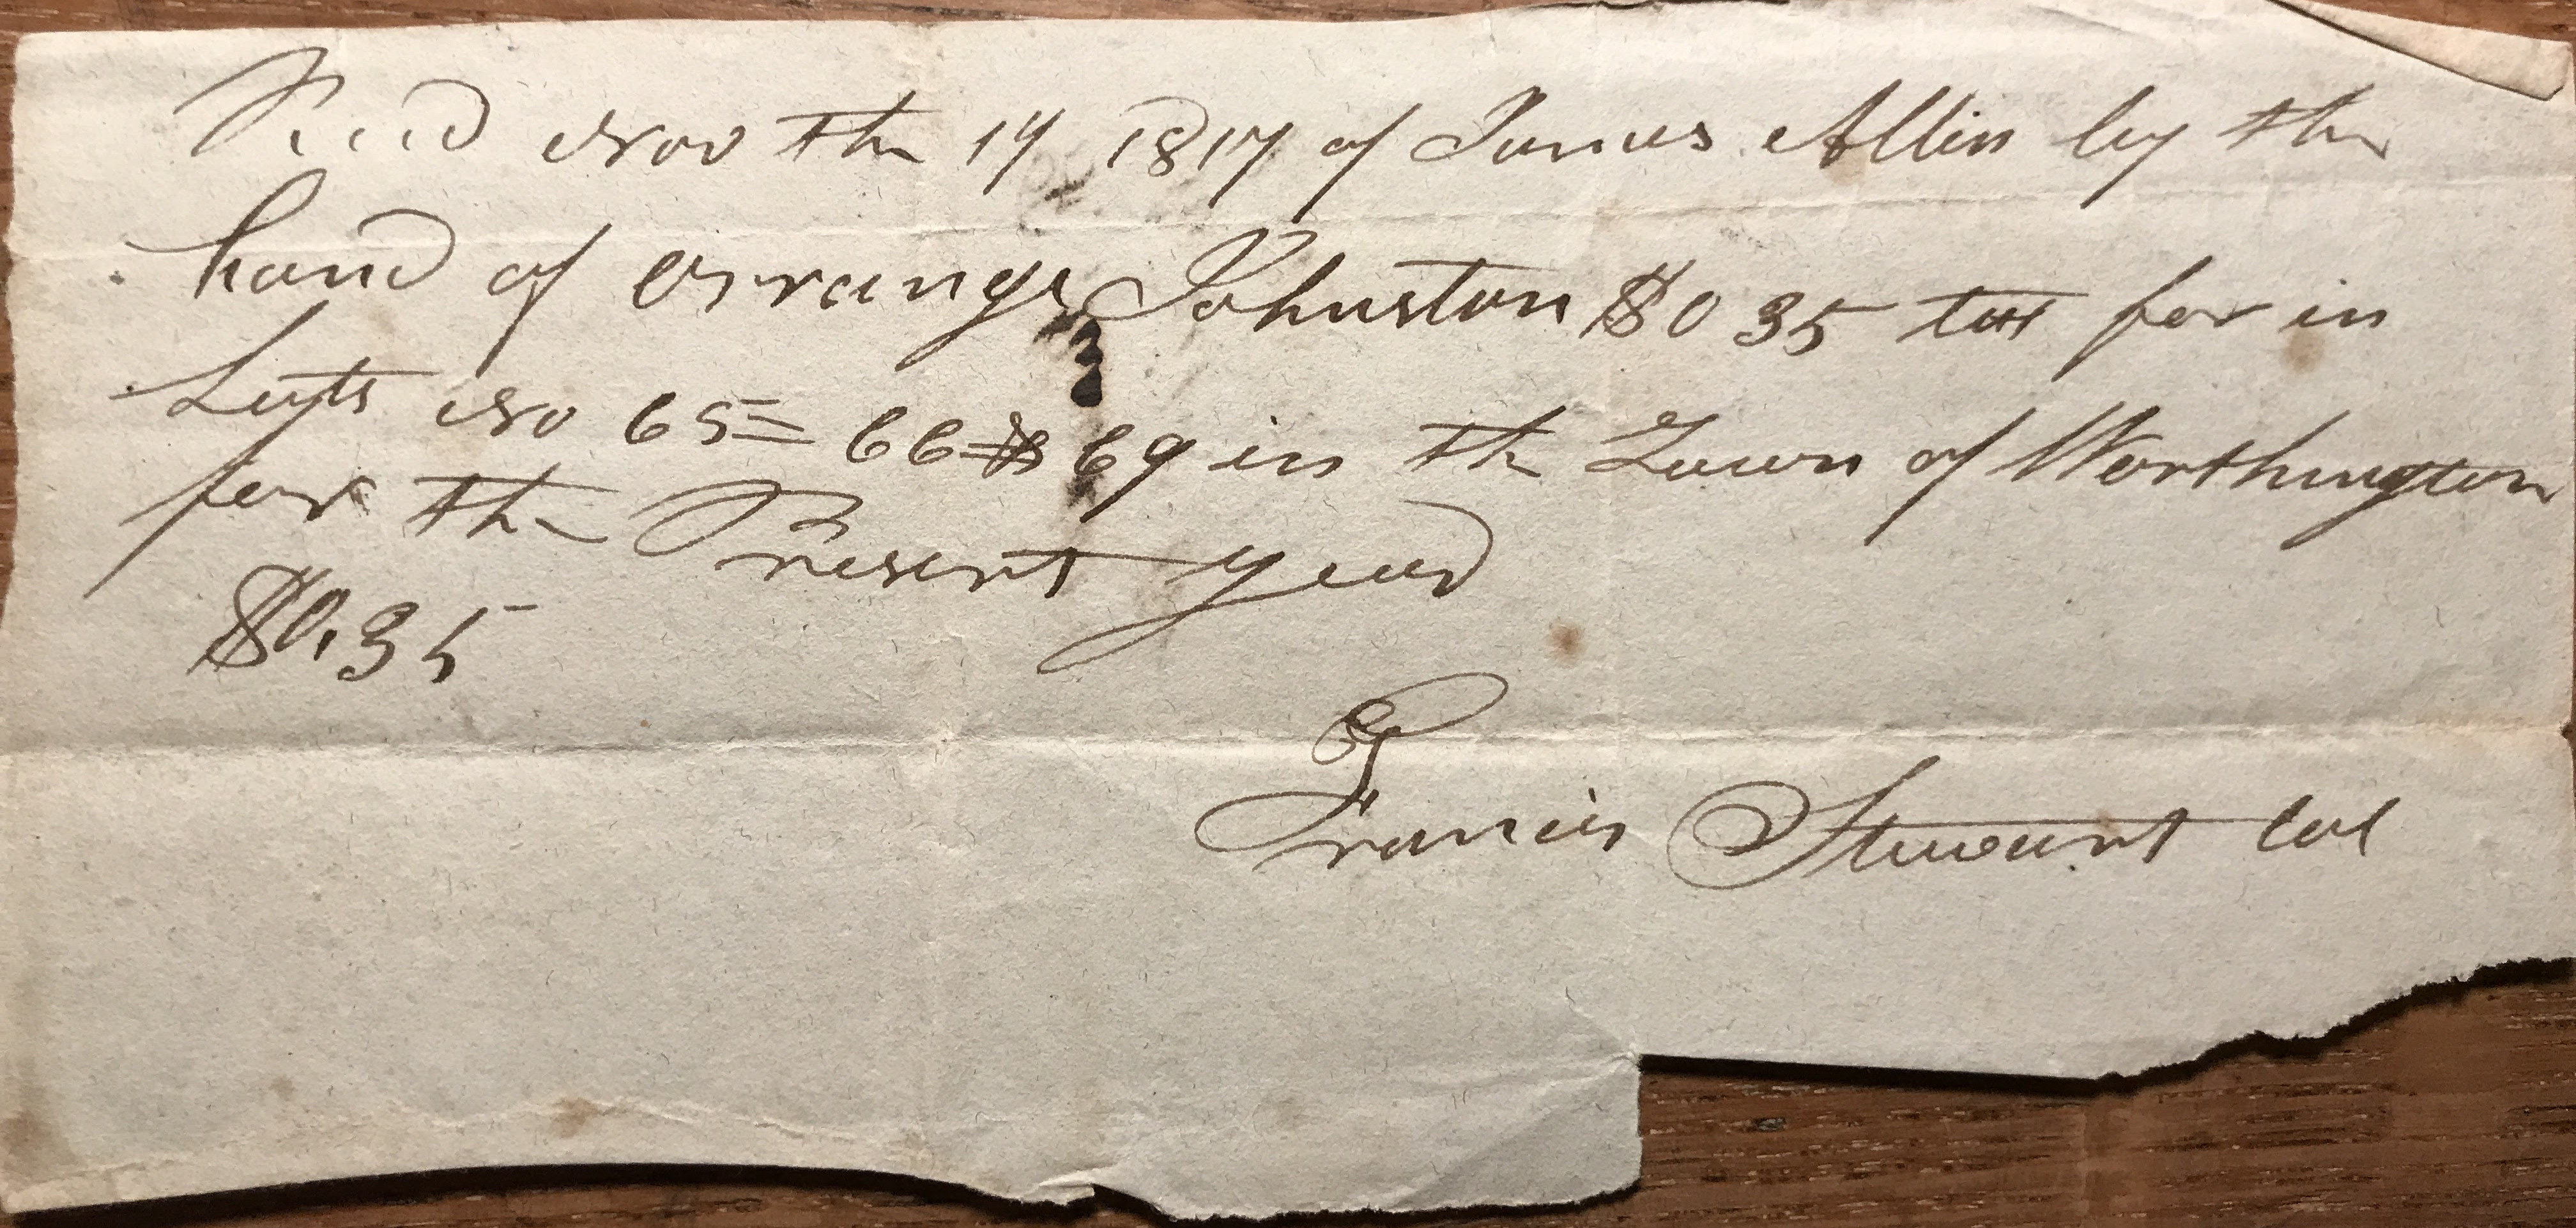 Recd Nov the 14 1817 of James Allin by the
hand of Orrange Johnston $0 35 tax for in
Lots No 65= 66= & 69 in the Town of Worthington
for the Present year
$0.35
Francis Stewart Col